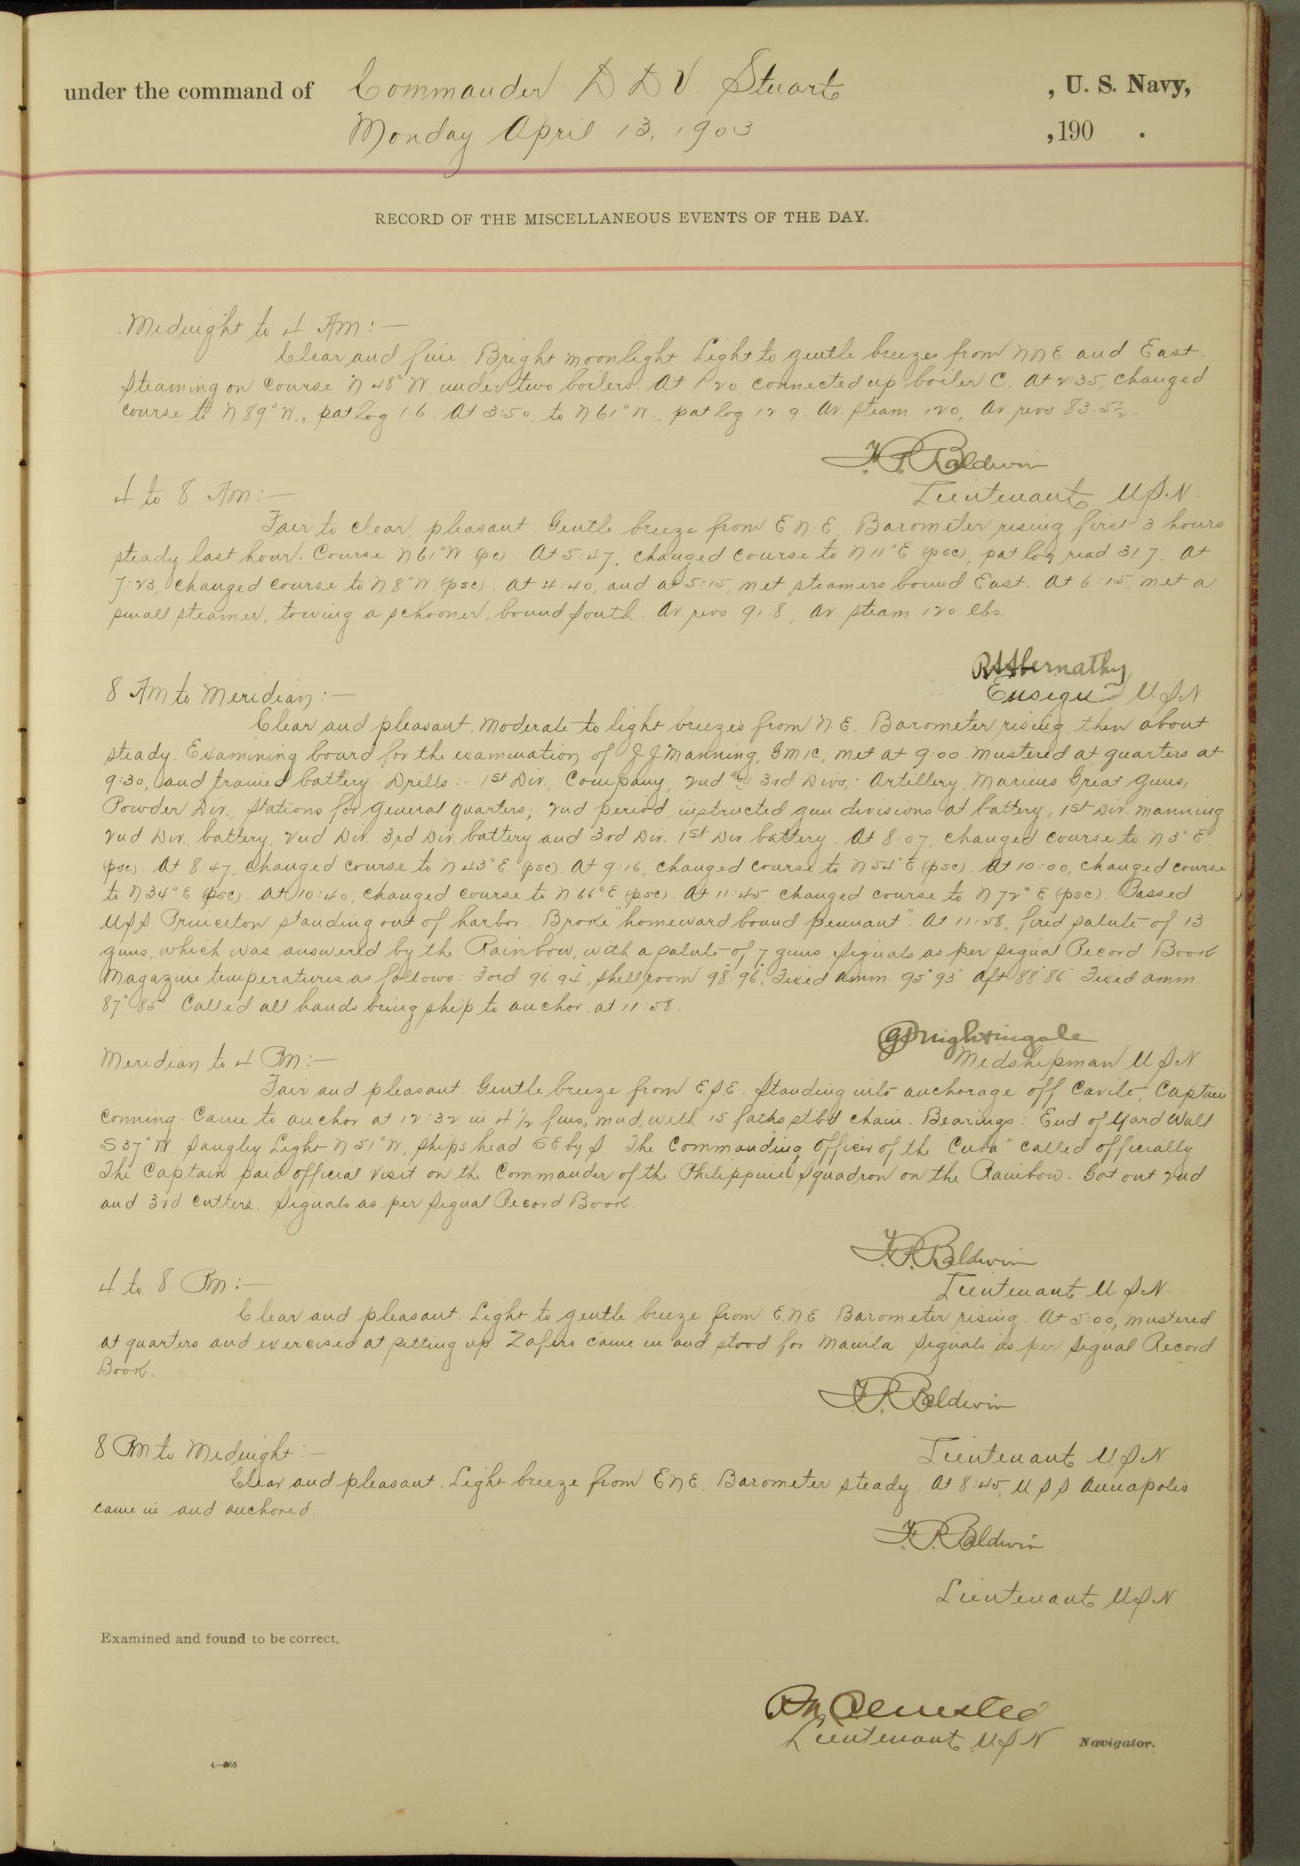 under the command of Commander D D V. Stuart , U. S. Navy,
Monday April 13, 1903 , 190 .
RECORD OF THE MISCELLANEOUS EVENTS OF THE DAY.
Midnight to 4 AM:—
Clear and fine. Bright moonlight. Light to gentle breezes from NNE and East.
Steaming on course N 48° W. under two boilers. At 1:20 connected up boiler C. At 2:35, changed
course to N 89° W., pat log 1.6. At 3:50, to N 61° W., pat log 12.9. Av. steam 120, Av. revs 83.5
F. R. Baldwin
Lieutenant U S N.
4 to 8 AM:—
Fair to clear, pleasant. Gentle breeze from E N E. Barometer rising first 3 hours
steady last hour. Course N 61° W. (psc). At 5:47, changed course to N 11° E (psc), pat log read 31.7. At
7:23, changed course to N 8° W. (psc). At 4:40, and at 5:15, met steamers bound East. At 6:15, met a
small steamer, towing a schooner, bound South. Av. revs. 91.8, Av. steam 120 lbs.
R S Abernathy
Ensign U S N
8 AM to Meridian:—
Clear and pleasant. Moderate to light breezes from N. E. Barometer rising then about
steady. Examining board for the examination of J J Manning, G M 1 c, met at 9:00. Mustered at quarters at
9:30, and trained battery. Drills:- 1st Div. Company, 2nd and 3rd Divs.: Artillery, Marines Great Guns,
Powder Div., Stations for general quarters; 2nd period, instructed gun divisions at battery, 1st Div. manning
2nd Div. battery, 2nd Div. 3rd Div. battery and 3rd Div. 1st Div. battery. At 8:07, changed course to N 3° E
(psc). At 8:47, changed course to N 43° E (psc). At 9:16, changed course to N 54° E (psc). At 10:00, changed course
to N 34° E (psc). At 10:40, changed course to N 66° E (psc). At 11:45 changed course to N 72° E (psc). Passed
U S S Princeton standing out of harbor. Broke "homeward bound pennant". At 11:58, fired salute of 13
guns, which was answered by the Rainbow, with a salute of 7 guns. Signals as per Signal Record Book
Magazine temperatures as follows: Ford 96° 94°, Shell room 98° 96°, Fixed amm. 95° 93° Aft 88° 86° Fixed amm.
87° 85°. Called all hands bring ship to anchor at 11:58.
G P Nightingale
Midshipman U S N
Meridian to 4 PM:—
Fair and pleasant. Gentle breeze from E S E. Standing into anchorage off Cavite, Captain
conning. Came to anchor at 12:32 in 4 1/2 fms, mud, with 15 faths stb'd chain. Bearings: End of Yard Wall
S 37° W. Sangley Light N 51° W., Ships head SE by S. The Commanding Officer of the "Cuba" called officially
The Captain paid official visit on the Commander of the Philippine Squadron on the Rainbow. Got out 2nd
and 3rd cutters. Signals as per Signal Record Book.
F. R. Baldwin
Lieutenant U S N.
4 to 8 PM:—
Clear and pleasant. Light to gentle breeze from E N E. Barometer rising. At 5:00, mustered
at quarters and exercised at setting up. Zafiro came in and stood for Manila. Signals as per Signal Record
Book.
F. R. Baldwin
Lieutenant U S N
8 PM to Midnight:—
Clear and pleasant. Light breeze from E N E. Barometer steady. At 8:45, U S S Annapolis
came in and anchored.
F. R. Baldwin
Lieutenant U S N
Examined and found to be correct.
P N Olmsted
Lieutenant U S N Navigator.